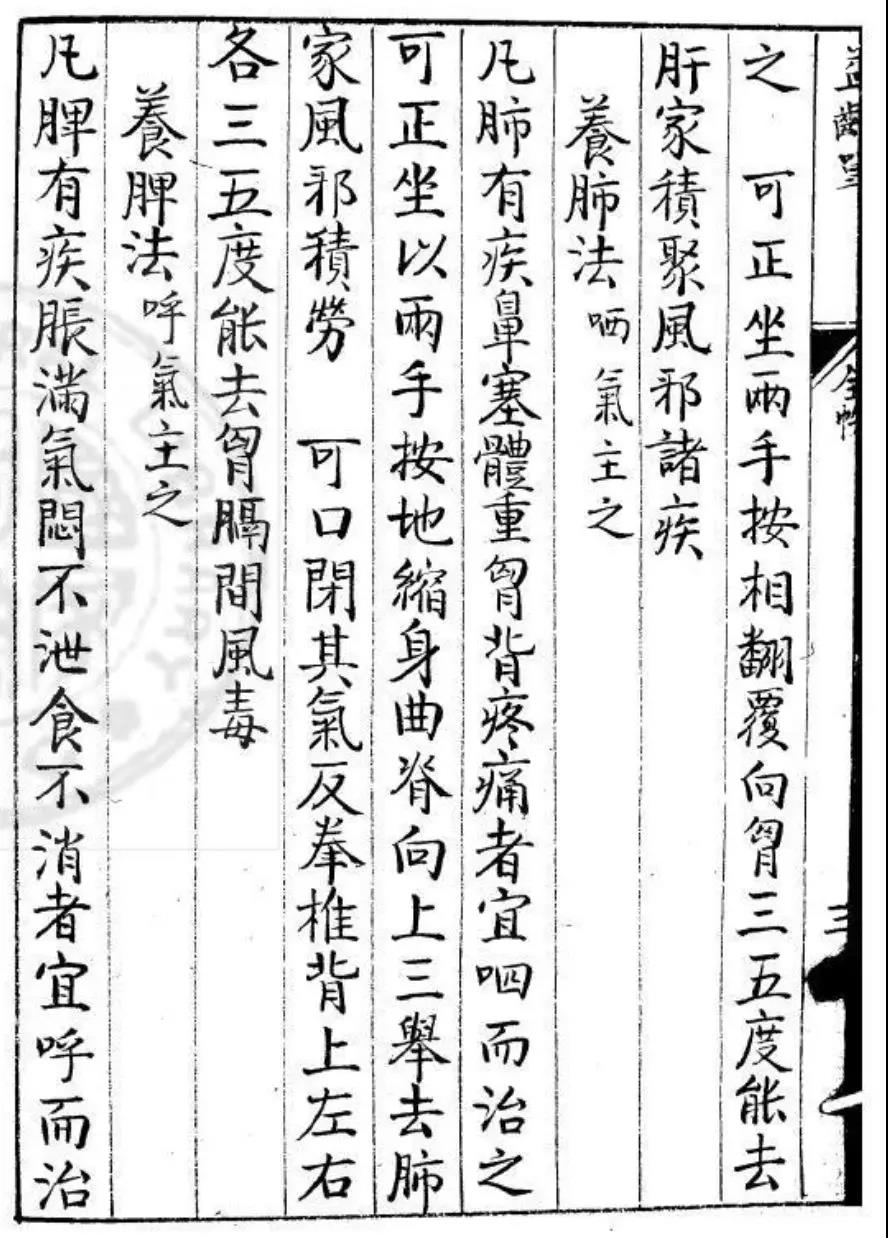 之　可正坐兩手按相翻覆向胷三五度能去
肝家積聚風邪諸疾
養肺法 呬氣主之
凡肺有疾鼻塞體重胷背疼痛者宜呬而治之
可正坐以兩手按地縮身曲脊向上三舉去肺
家風邪積勞　可口閉其氣反拳椎背上左右
各三五度能去胷膈間風毒
養脾法 呼氣主之
凡脾有疾脹滿氣悶不泄食不消者宜呼而治